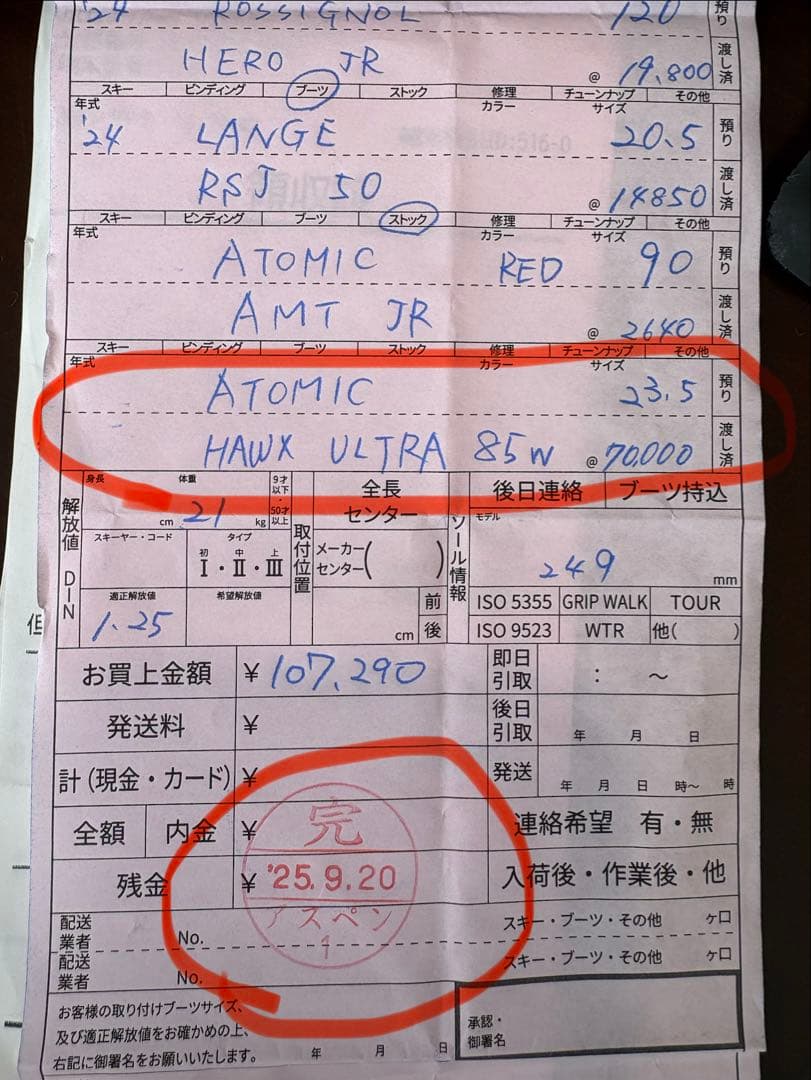 '24 ROSSIGNOL 120 預り
HERO JR @ 19,800 渡し済
スキー ビンディング ブーツ ストック 修理 チューンナップ その他
年式 カラー サイズ
'24 LANGE 20.5 預り
RSJ 50 @ 14850 渡し済
スキー ビンディング ブーツ ストック 修理 チューンナップ その他
年式 カラー サイズ
ATOMIC RED 90 預り
AMT JR @ 2640 渡し済
スキー ビンディング ブーツ ストック 修理 チューンナップ その他
年式 カラー サイズ
ATOMIC 23.5 預り
HAWX ULTRA 85W @ 70,000 渡し済
解放値 DIN
身長 cm 体重 21 kg 9才以下・50才以上
スキーヤー・コード タイプ
初 中 上
I・II・III
適正解放値 希望解放値
1.25
取付位置
全長
センター
メーカーセンター( )
cm 前 後
後日連絡 ブーツ持込
ソール情報
モデル
249 mm
ISO 5355 GRIP WALK TOUR
ISO 9523 WTR 他( )
お買上金額 ¥ 107,290 即日引取 : ～
発送料 ¥ 後日引取 年 月 日
計(現金・カード) ¥ 発送 年 月 日 時～ 時
全額 内金 ¥ 連絡希望 有・無
残金 ¥ 入荷後・作業後・他
完
'25.9.20
アスペン
1
配送業者 No. スキー・ブーツ・その他 ヶ口
配送業者 No. スキー・ブーツ・その他 ヶ口
お客様の取り付けブーツサイズ、
及び適正解放値をお確かめの上、
右記に御署名をお願いいたします。 年 月 日
承認・
御署名
但